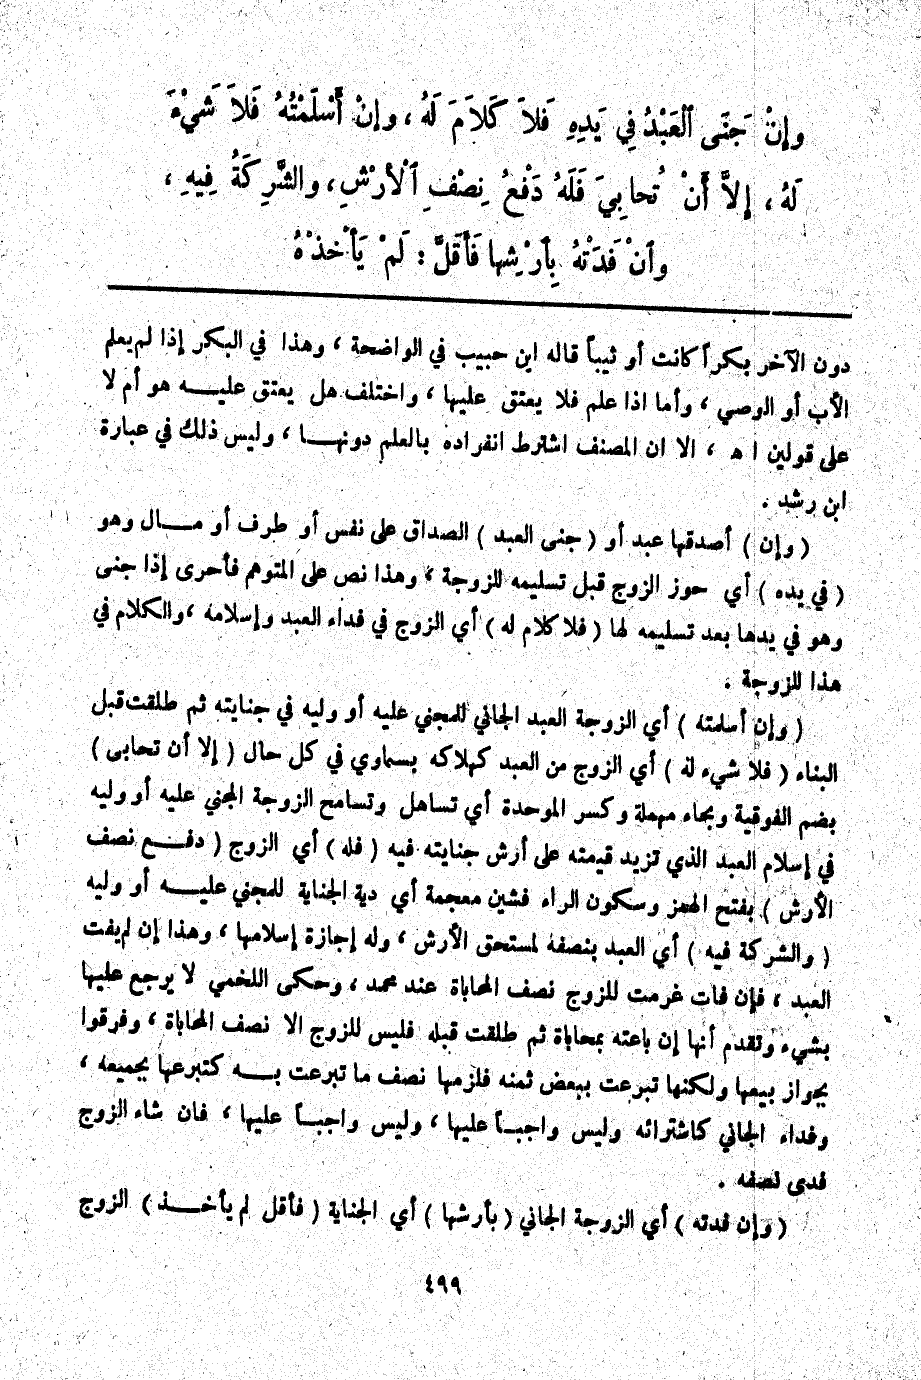 وإنْ جَنَى ٱلْعَبْدُ فِي يَدِهِ فَلاَ كَلاَمَ لَهُ ، وإنْ أَسْلَمَتْهُ فَلاَ شَيْءَ
لَهُ ، إلاَّ أَنْ تُحابِيَ فَلَهُ دَفْعُ نِصْفِ ٱلْأَرْشِ ، والشَّرِكَةُ فِيهِ ،
وٱنْ فَدَتْهُ بِأَرْشِها فَأَقَلَّ : لَمْ يَأْخذْهُ
دون الآخر بكراً كانت أو ثيباً قاله ابن حبيب في الواضحة ، وهذا في البكر إذا لم يعلم
الأب أو الوصي ، وأما اذا علم فلا يعتق عليها ، واختلف هل يعتق عليه هو أم لا
على قولين ا ه ، الا ان المصنف اشترط انفراده بالعلم دونها ، وليس ذلك في عبارة
ابن رشد .
( وإن ) أصدقها عبد أو ( جنى العبد ) الصداق على نفس أو طرف أو مال وهو
( في يده ) أي حوز الزوج قبل تسليمه للزوجة ، وهذا نص على المتوهم فأحرى إذا جنى
وهو في يدها بعد تسليمه لها ( فلا كلام له ) أي الزوج في فداء العبد وإسلامه ، والكلام في
هذا للزوجة .
( وإن أسلمته ) أي الزوجة العبد الجاني للمجني عليه أو وليه في جنايته ثم طلقت قبل
البناء ( فلا شيء له ) أي الزوج من العبد كهلاكه بسماوي في كل حال ( إلا أن تحابى )
بضم الفوقية وبحاء مهملة وكسر الموحدة أي تساهل وتسامح الزوجة المجني عليه أو وليه
في إسلام العبد الذي تزيد قيمته على أرش جنايته فيه ( فله ) أي الزوج ( دفع نصف
الأرش ) بفتح الهمز وسكون الراء فشين معجمة أي دية الجناية للمجني عليه أو وليه
( والشركة فيه ) أي العبد بنصفه لمستحق الأرش ، وله إجازة إسلامها ، وهذا إن لم يفت
العبد ، فإن فات غرمت للزوج نصف المحاباة عند محمد ، وحكى اللخمي لا يرجع عليها
بشيء وتقدم أنها إن باعته بمحاباة ثم طلقت قبله فليس للزوج الا نصف المحاباة ، وفرقوا
بجواز بيعها ولكنها تبرعت ببعض ثمنه فلزمها نصف ما تبرعت به كتبرعها بجميعه ،
وفداء الجاني كاشترائه وليس واجباً عليها ، وليس واجباً عليها ، فان شاء الزوج
فدى نصفه .
( وإن فدته ) أي الزوجة الجاني ( بأرشها ) أي الجناية ( فأقل لم يأخذ ) الزوج
٤٩٩